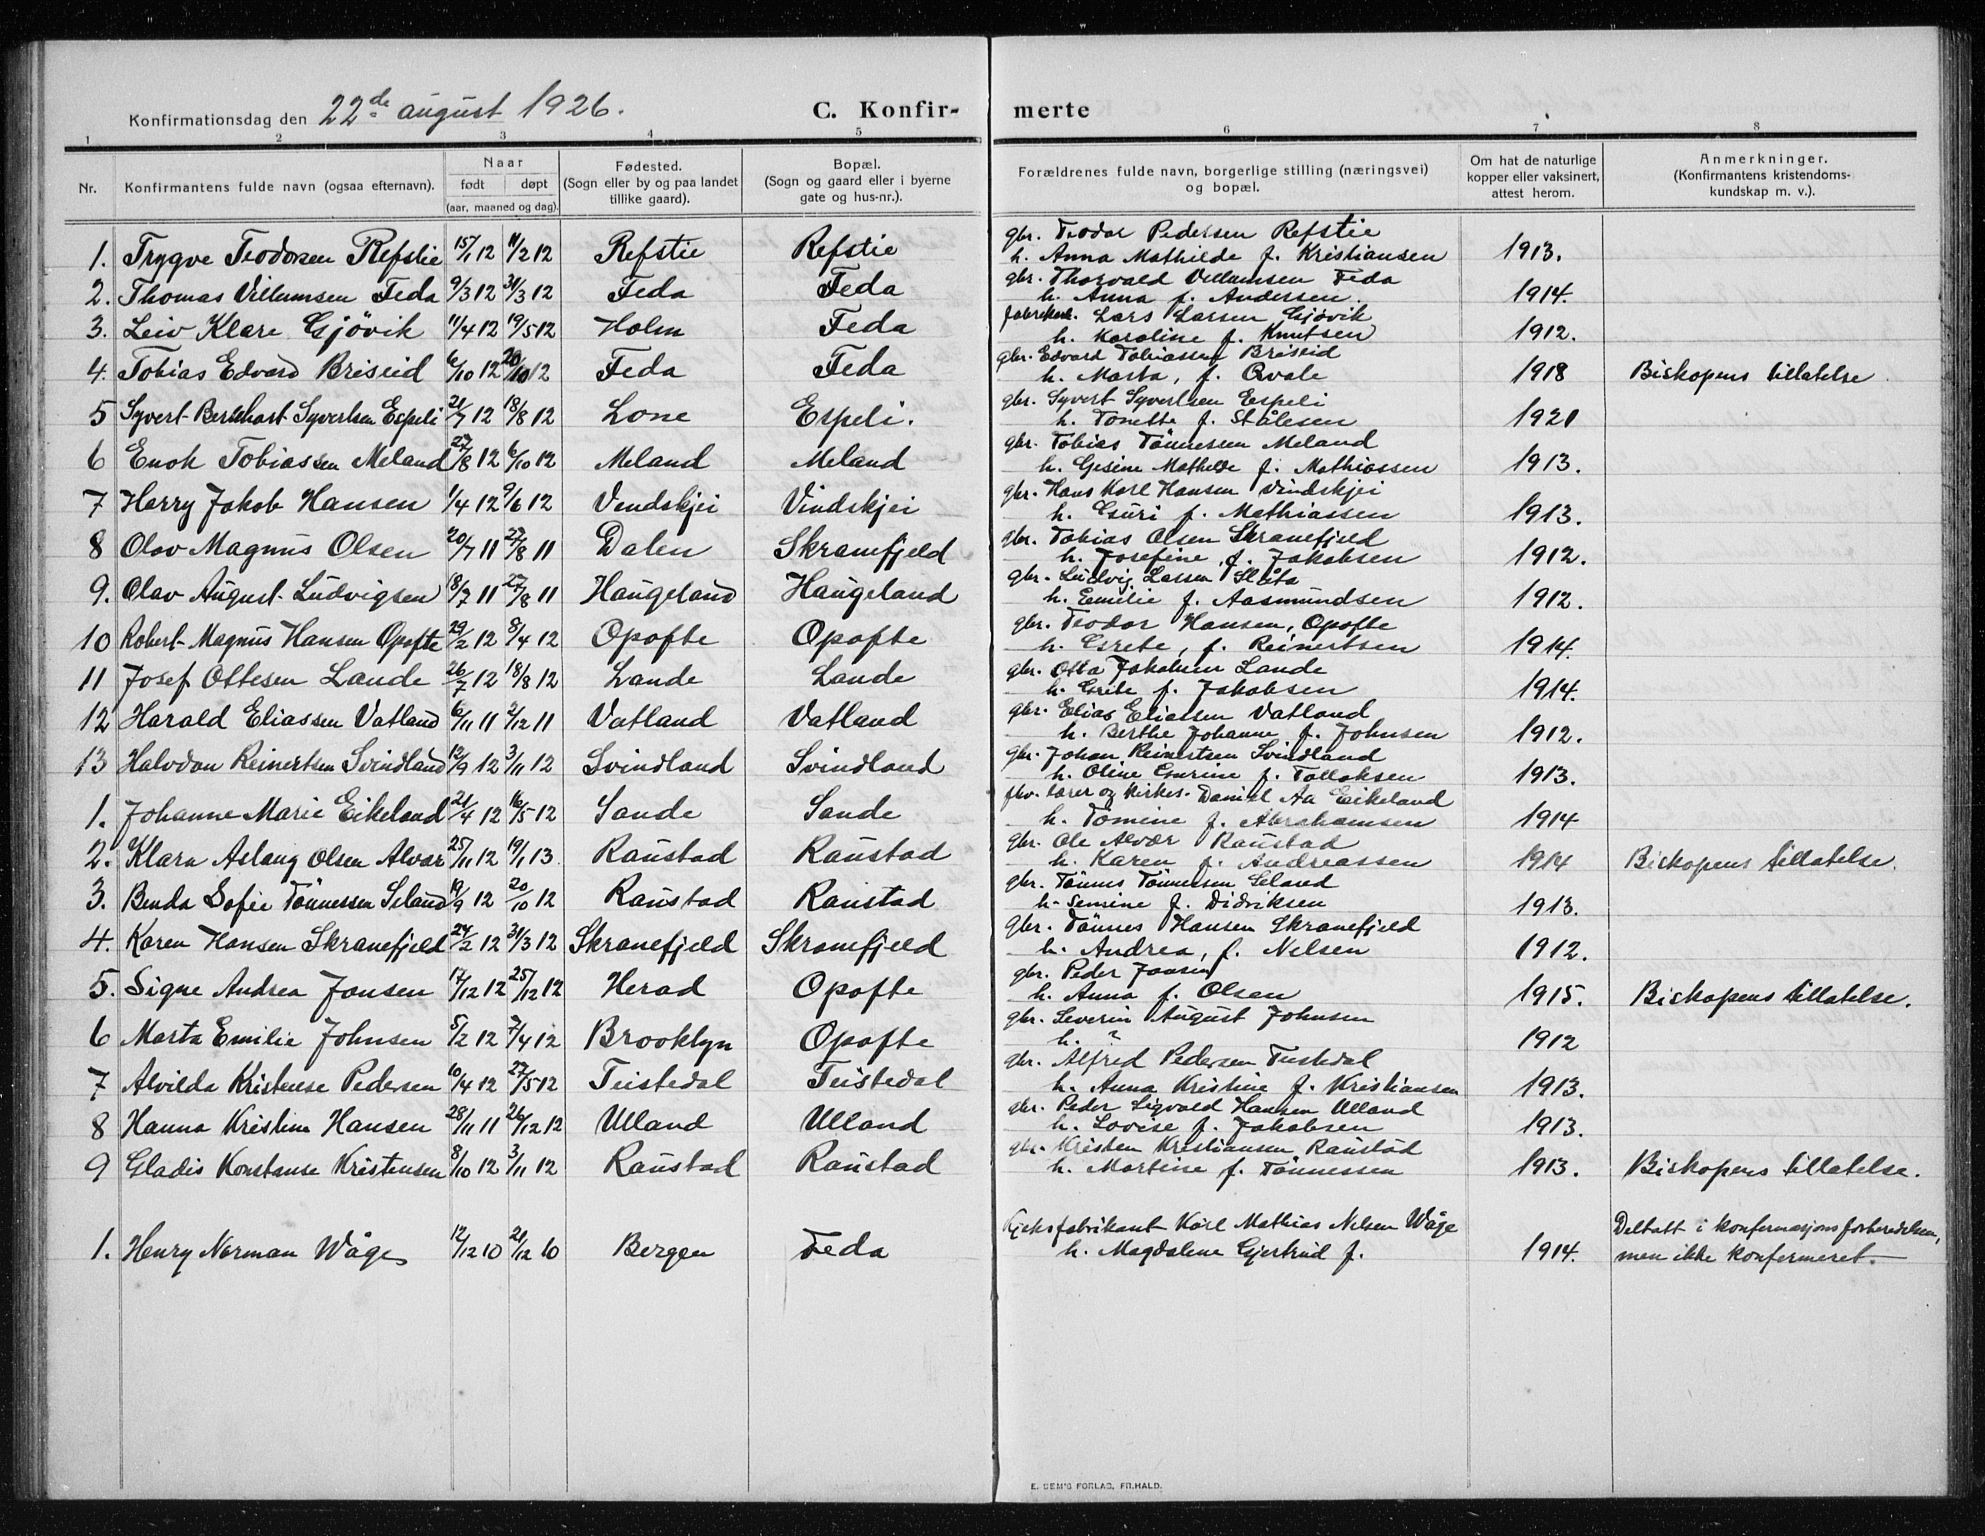 Konfirmationsdag den 22de august 1926.
C. Konfir-
merte
1 2 3 4 5 6 7 8
Nr.
Konfirmantens fulde navn (ogsaa efternavn).
Naar
født døpt
(aar, maaned og dag).
Fødested.
(Sogn eller by og paa landet
tillike gaard).
Bopæl.
(Sogn og gaard eller i byerne
gate og hus-nr.).
Forældrenes fulde navn, borgerlige stilling (næringsvei)
og bopæl.
Om hat de naturlige
kopper eller vaksinert,
attest herom.
Anmerkninger.
(Konfirmantens kristendoms-
kundskap m. v.).
gbr. Teodor Pedersen Refstie
1. Trygve Teodorsen Refstie 15/1 12 11/2 12 Refstie Refstie h. Anna Mathilde f. Kristiansen 1913.
gbr. Thorvald Villumsen Feda
2. Thomas Villumsen Feda 9/3 12 31/3 12 Feda Feda h. Anna f. Andersen. 1914.
Lars Larsen Gjövik
3. Leiv Klare Gjövik 11/4 12 19/5 12 Holm Feda h. Karoline f. Knutsen 1912.
gbr. Edvard Tobiassen Briseid
4. Tobias Edvard Briseid 6/10 12 20/10 12 Feda Feda h. Marta, f. Qvale 1918 Biskopens tillatelse.
gbr. Syvert Syvertsen Espeli
5 Syvert Bernhart Syvertsen Espeli 21/7 12 18/8 12 Lone Espeli. h. Tonette f. Stålesen 1921
gbr. Tobias Tönnesen Meland
6 Enok Tobiassen Meland 27/8 12 6/10 12 Meland Meland h. Gesine Mathilde f. Mathiassen 1913.
gbr. Hans Karl Hansen Vindskjei
7 Harry Jakob Hansen 1/4 12 9/6 12 Vindskjei Vindskjei h. Guri f. Mathiassen 1913.
gbr. Tobias Olsen Skranefjeld
8 Olav Magnus Olsen 20/7 11 27/8 11 Dalen Skranefjeld h. Josefine, f. Jakobsen 1912.
gbr. Ludvig Larsen Slåta
9. Olav August Ludvigsen 18/7 11 27/8 11 Haugeland Haugeland h. Emilie f. Aasmundsen 1912.
gbr. Teodor Hansen, Opofte
10 Robert Magnus Hansen Opofte 29/2 12 8/4 12 Opofte Opofte h. Grete, f. Reinertsen 1914.
gbr. Otto Jakobsen Lande
11 Josef Ottesen Lande 26/7 12 18/8 12 Lande Lande h. Grete f. Jakobsen 1914.
gbr. Elias Eliassen Vatland
12 Harald Eliassen Vatland 6/11 11 2/12 11 Vatland Vatland h. Berthe Johanne f. Johnsen 1912.
gbr. Johan Reinertsen Svindland
13 Halvdan Reinertsen Svindland 12/9 12 3/11 12 Svindland Svindland h. Oline Gurine f. Tollaksen 1913.
lærer og kirkes. Daniel Aa Eikeland
1. Johanne Marie Eikeland 21/4 12 16/5 12 Sande Sande h. Tomine f. Abrahamsen 1914
gbr. Ole Alvær Raustad
2. Klara Aslaug Olsen Alvær 25/11 12 19/1 13. Raustad Raustad h. Karen f. Andreassen 1914 Biskopens tillatelse.
gbr. Tönnes Tönnessen Seland
3. Benda Sofie Tönnessen Seland 19/9 12 20/10 12 Raustad Raustad h. Semine f. Didriksen 1913.
gbr. Tönnes Hansen Skranefjeld
4. Karen Hansen Skranefjeld 24/2 12 31/3 12 Skranefjeld Skranefjeld h. Andrea, f. Nelsen 1912.
gbr. Peder Jansen
5. Signe Andrea Jansen 17/12 12 25/12 12 Herad Opofte h. Anna f. Olsen 1915. Biskopens tillatelse.
gbr. Severin August Johnsen
6 Marta Emilie Johnsen 5/2 12 7/4 12 Brooklyn Opofte h. ? 1912
gbr. Alfred Pedersen Tuistedal
7 Alvilda Kristense Pedersen 10/4 12 27/5 12 Teistedal Teistedal h. Anna Kristine f. Kristiansen 1913.
gbr. Peder Sigvald Hansen Ulland
8 Hanna Kristine Hansen 28/11 11 26/12 12 Ulland Ulland h. Lovise f. Jakobsen 1913.
gbr. Kristen Kristiansen Raustad
9 Gladis Konstanse Kristensen 8/10 12 3/11 12 Raustad Raustad h. Martine f. Tönnessen 1913. Biskopens tillatelse.
Kjeksfabrikant Karl Mathias Nelsen Wåge Deltatt i konfirmasjonsforberedelsen,
1. Henry Norman Wåge 12/12 10 21/12 10 Bergen Feda h. Magdalene Gjertrud f. 1914. men ikke konfirmeret.
E. SEM'S FORLAG, FR.HALD.